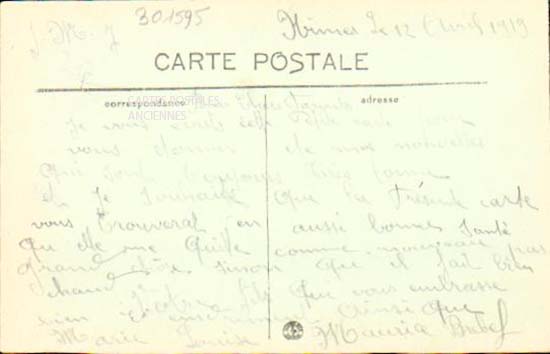 301595
J. M. J
Nimes le 12 Avril 1919
CARTE POSTALE
correspondance
adresse
CARTES POSTALES
ANCIENNES
Bien Chers Parents
Je vous écris cette Petite carte pour
vous donner de mes nouvelles
qui sont toujours très bonne
et Je souhaite que la Présente carte
vous trouverat en aussi bonne santé
qu'elle me quitte comme nouveau pas
grand chose sinon que il fait bien
chaud votre fils qui vous embrasse
bien et ainsi que
Marie Louise Maurice